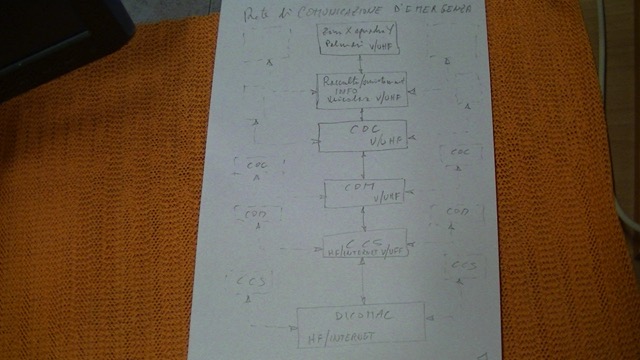 Rete di COMUNICAZIONE D'EMERGENZA
Zona X epicentri Y
Palmari V/UHF
Raccolta
INFO
V/UHF
COC
V/UHF
COC
COC
COM
V/UHF
COM
COM
CCS
HF/INTERNET V/UHF
CCS
CCS
DICOMAC
HF/INTERNET